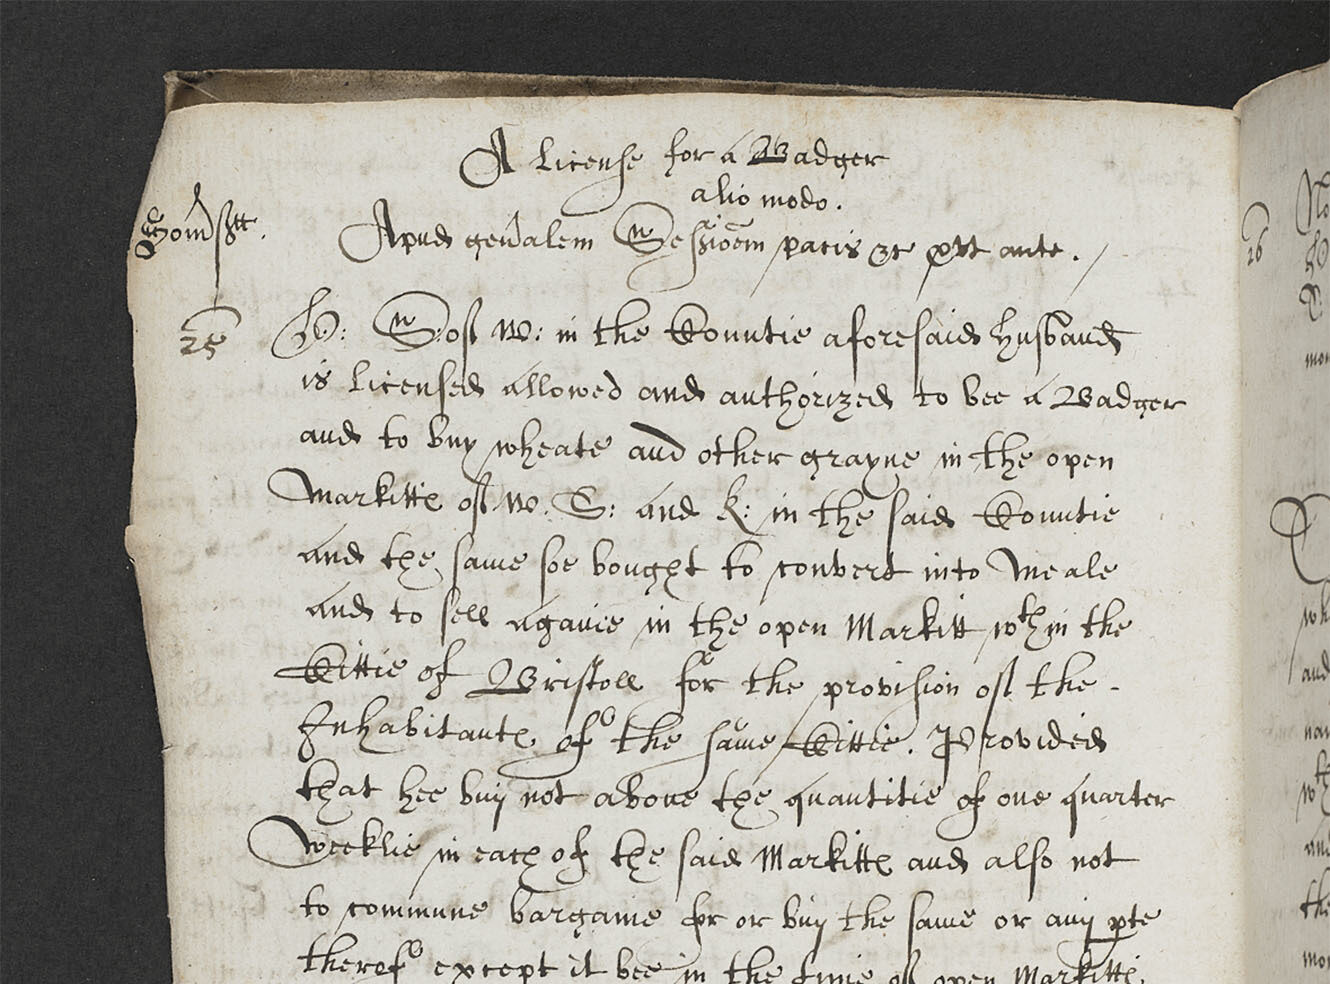 A License for a Badger
alio modo.
Som̃sett.
Apud gen̄alem Sessiōem pacis &c p̱ut ante.
25
H: S: of W: in the Countie aforesaid husband
is licensed allowed and authorized to bee a Badger
and to buy wheate and other grayne in the open
Markitts of W. S: and K: in the said Countie
and the same soe bought to convert into Meale
and to sell againe in the open Markitt wthin the
Cittie of Bristoll for the provision of the
Inhabitants of the same Cittie. Provided
that hee buy not above the quantitie of one quarter
weeklie in each of the said Markitts and also not
to commune bargaine for or buy the same or any p̱te
therof except it bee in the time of open Markitts
26